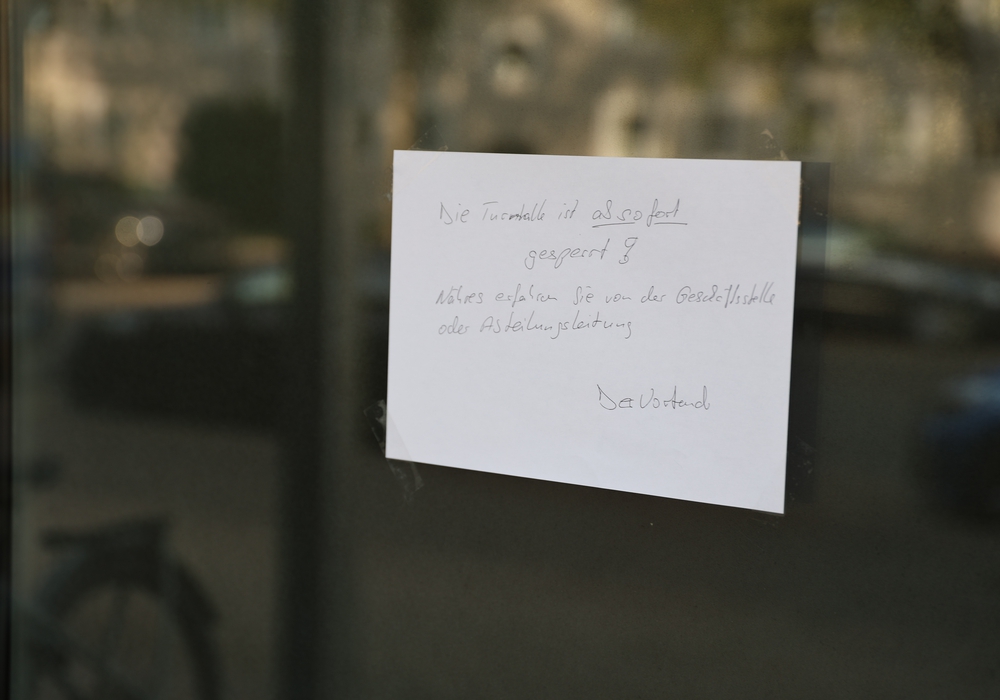 Die Turnhalle ist ab sofort
gesperrt !
Nähres erfahren Sie von der Geschäftsstelle
oder Abteilungsleitung
Der Vorstand